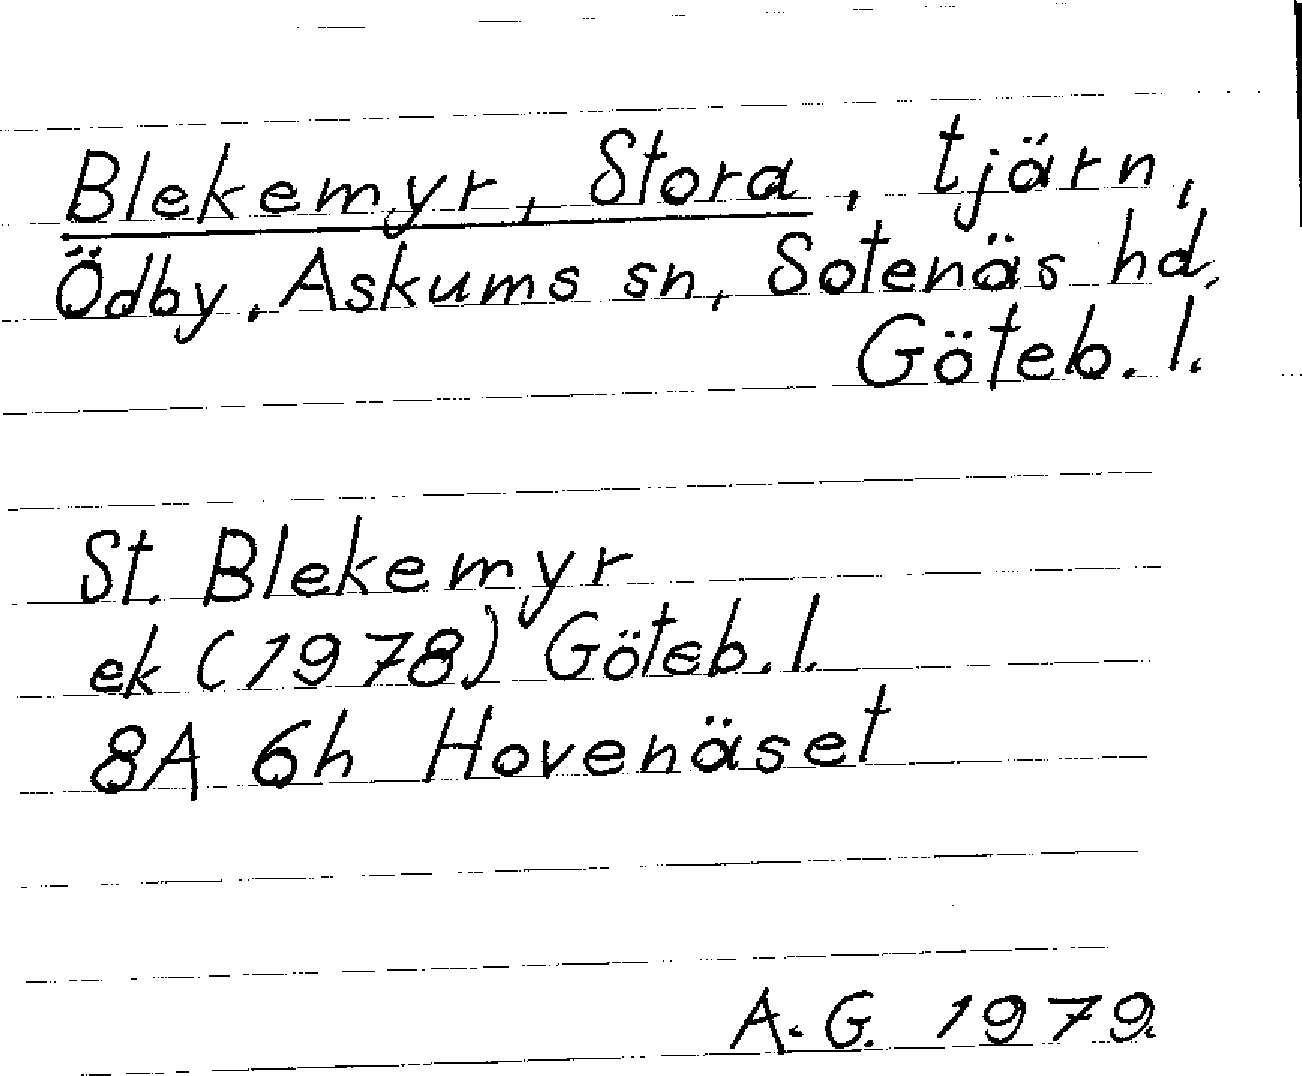 Blekemyr, Stora, tjärn,
Ödby, Askums sn, Sotenäs hd,
Göteb. l.
St. Blekemyr
ek (1978) Göteb. l.
8A 6h Hovenäset
A. G. 1979.